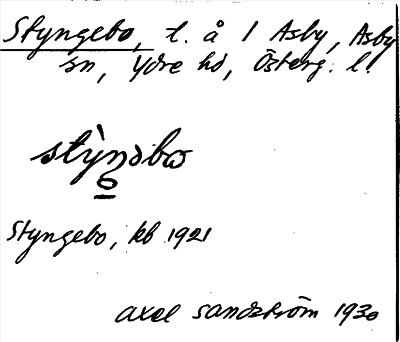 Styngebo, t. å 1 Asby, Asby
sn, Ydre hd, Österg. l.
Styngebo, kb 1921
Axel Sandström 1930